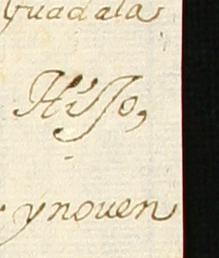 Guadala
Hijo,
ynouen